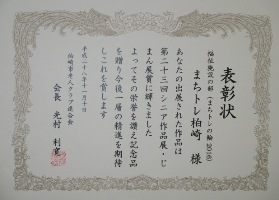 表彰状
福祉施設の部(まちトレの輪2018)
まちトレ柏崎 様
あなたの出展された作品は
第二十三回シニア作品展・じ
まん展賞に輝きました
よってその栄誉を讃え記念品
を贈り今後一層の精進を期待
しこれを賞します
平成二十八年十一月十日
柏崎市老人クラブ連合会
会長 光村 利寛